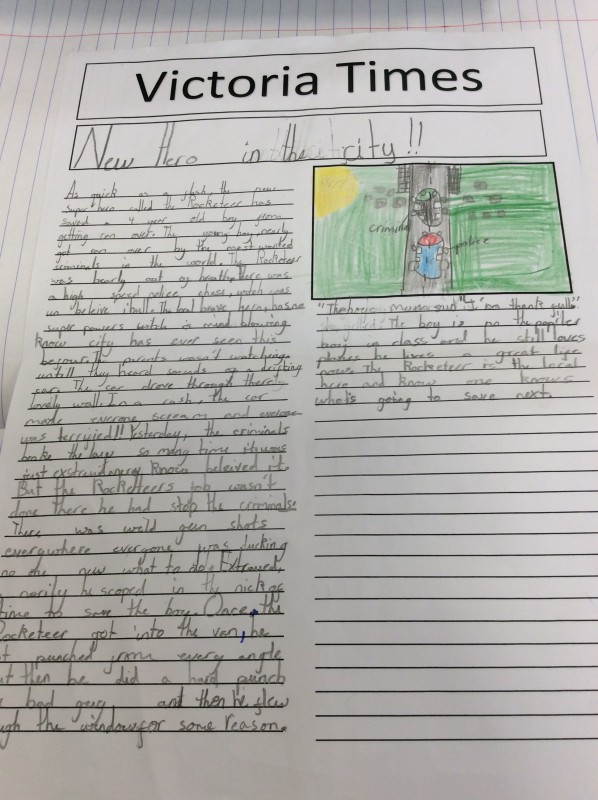 Victoria Times
New Hero in the city!!
As quick as a flash, the new
super hero called the Rocketeer has
saved a 4 year old boy from
getting ran over. The young boy nearly
got ran over by the most wanted
criminals in the world. The Rocketeer
was hearly out of breath, there was
a high speed police chase, witch was
un beleive ibull. The boal brave hero, has
super powers witch is mind blowing.
Know city has ever seen this
before. The parents wasn't watching
untill they heard sounds of a drifting
car. The car drove through there
lovely wall. In a rash, the car
made everone scream and everone
was terryfied!! Yesterday, the criminals
broke the law so many time it was
just exstraudenerey know beleived it.
But the Rocketeers job wasn't
done there he had stop the criminals.
There was wold gun shots
everywhere everyone was ducking
no one new what to do. Extreued,
he scoped in the nick of
time to save the boy. Once the
Rocketeer got into the van, he
punched from every angle
then he did a hard punch
bad guy and then he flew
the window for some reason.
criminal
police
mum said "I'm thank full"
The boy is no the popiler
boy in class and he still loves
planes he lives a great life
now. The Rocketeer is the local
hero and know one knows
who's going to save next.